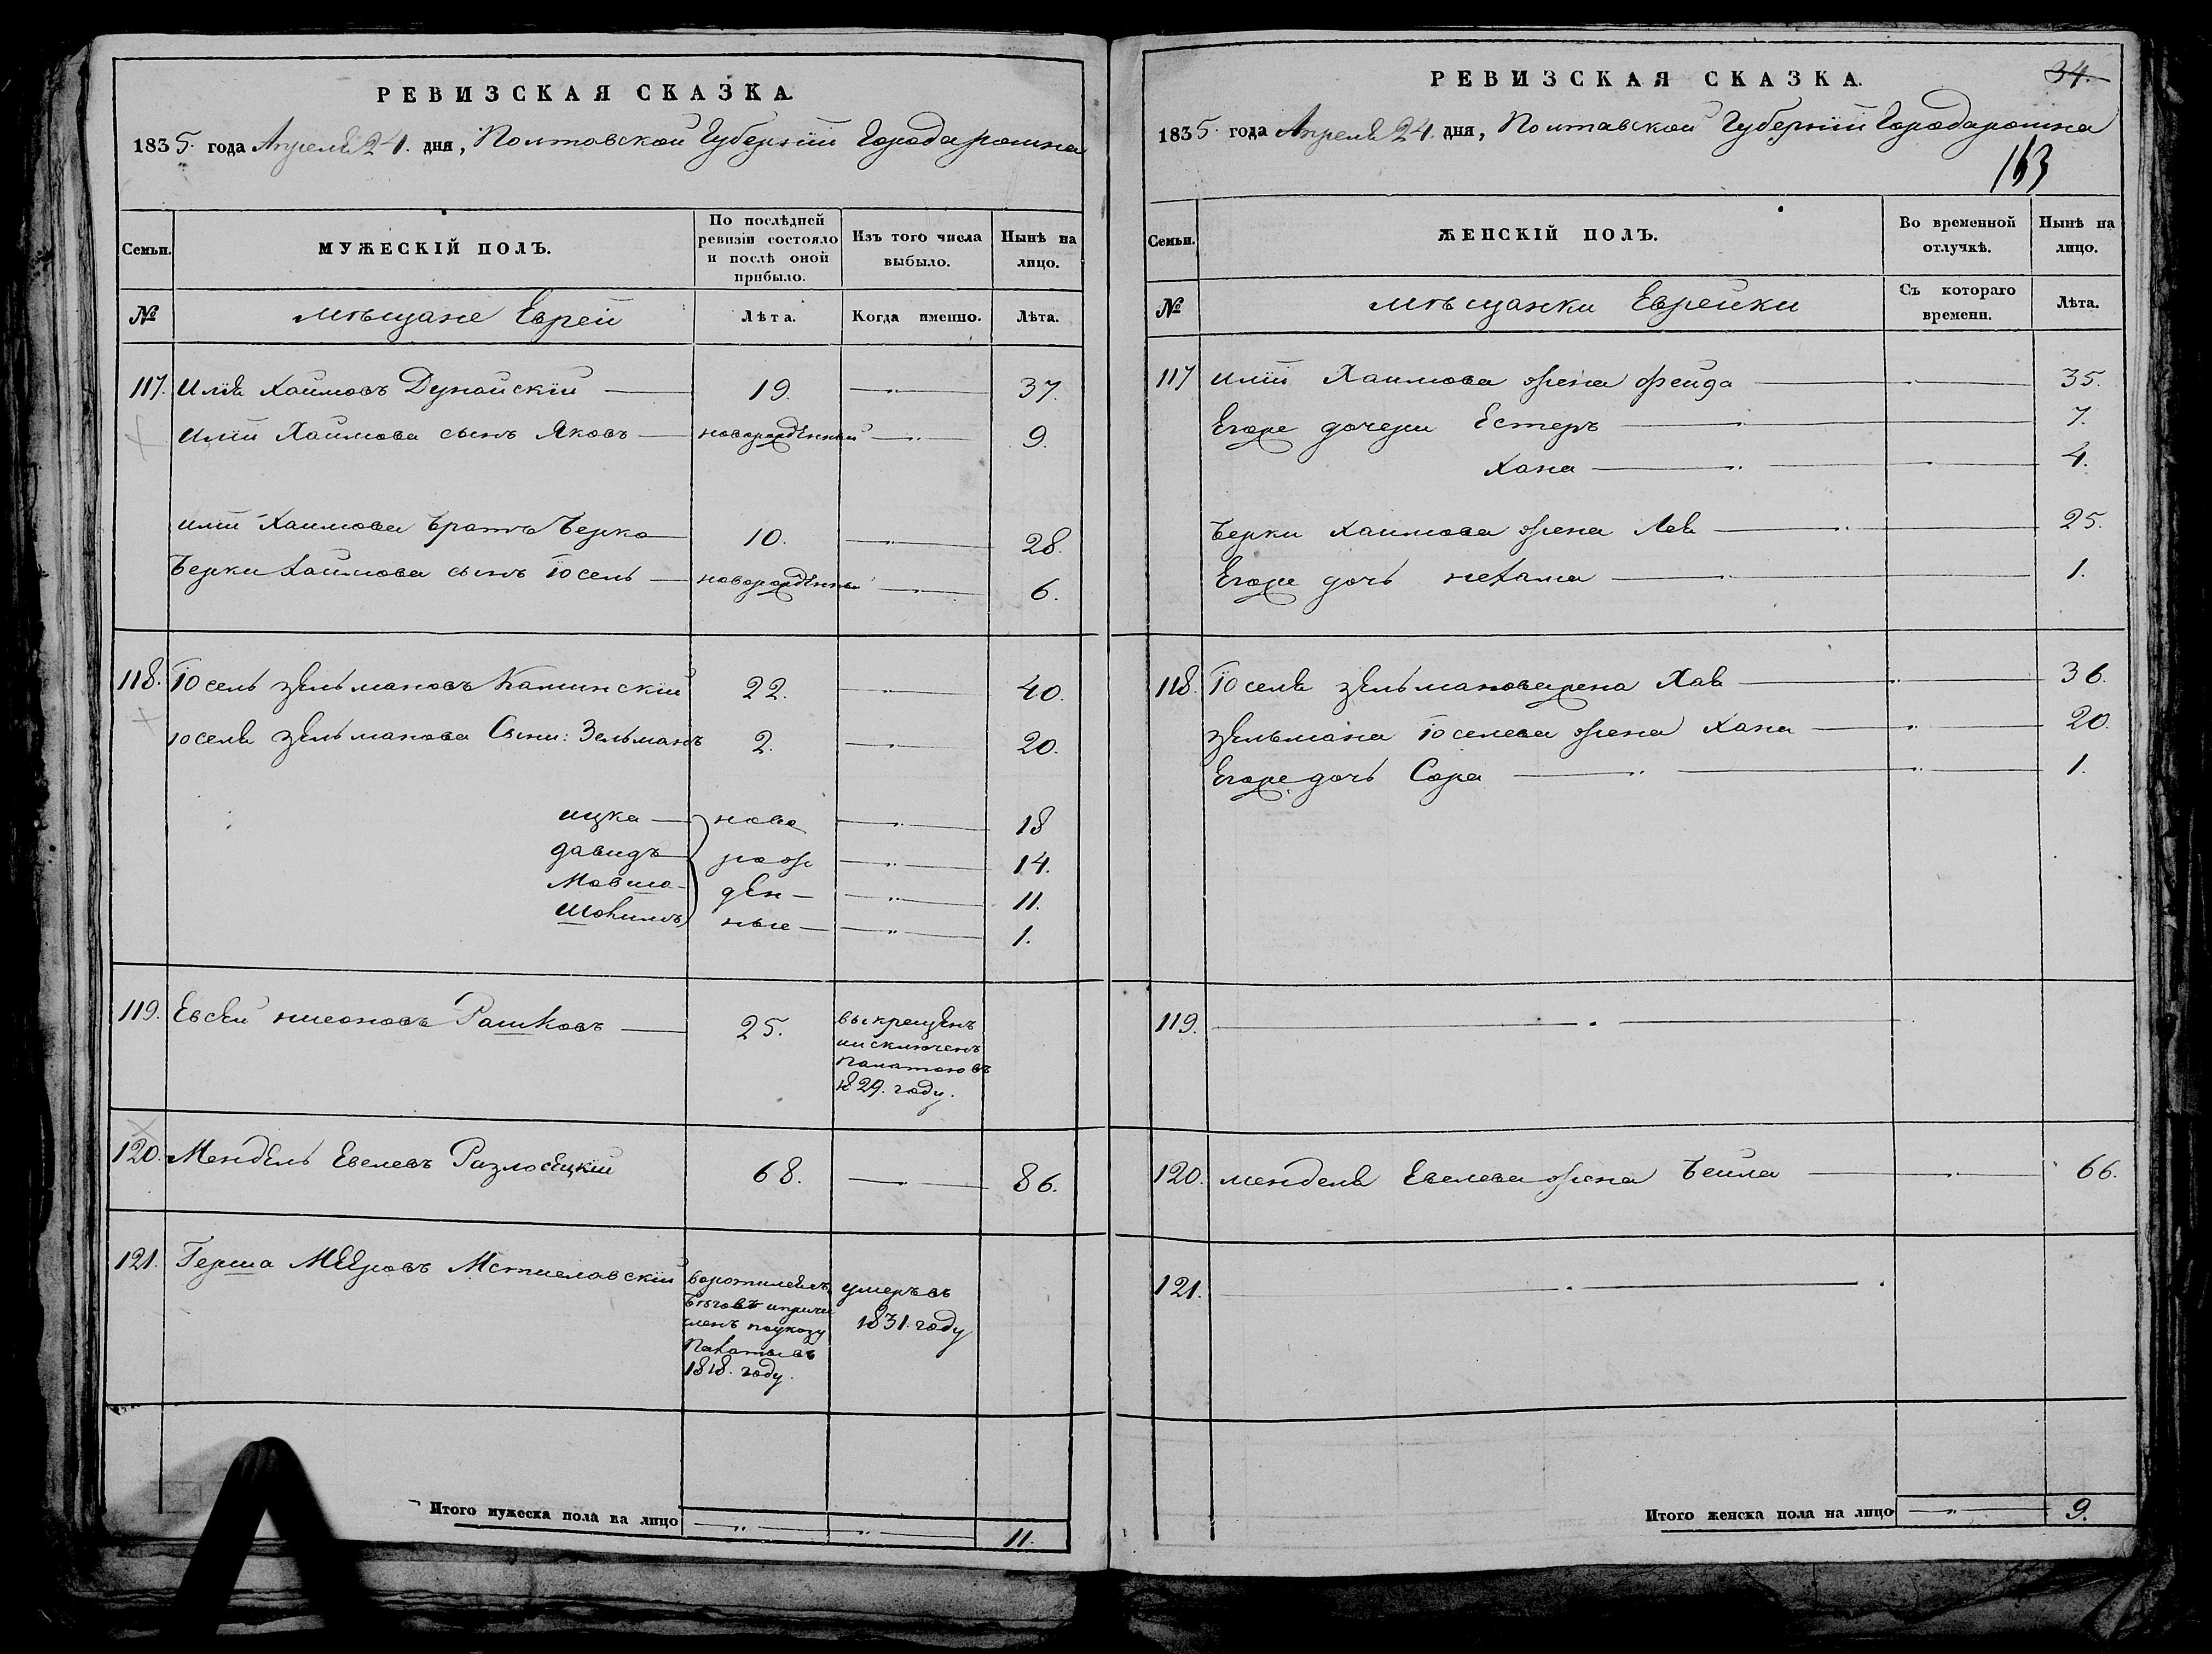 РЕВИЗСКАЯ СКАЗКА.
1835. года Апреля 24. дня, Полтовской Губернїи Города ромна
Семьи.
МУЖЕСКІЙ ПОЛЪ.
По послѣдней ревизіи состояло и послѣ оной прибыло.
Изъ того числа выбыло.
Нынѣ на лицо.
№
мѣщане Евреи
Лѣта.
Когда именно.
Лѣта.
117. Илїя Хаимовъ Дунайскїй 19. 37.
Илїи Хаимова сынъ Яковъ новорожденный 9.
илїи Хаимова братъ Берко 10. 28.
Берки Хаимова сынъ Їосель новорожденный 6.
118. Їосель зельмановъ Каминскїй 22. 40.
їоселя зельманова Сыни: Зельманъ 2. 20.
ицка ново 18
давидъ рож 14.
Мовша ден 11.
ные 1.
119. Евсей Рашковъ 25. выкрещенъ
иисключенъ
Палатою въ
1829. году.
120. Мендель Евелевъ 68. 86.
121. Герша Мееровъ Мстиславскїй
умеръ въ
1831. году
поуказу
Палаты въ
1818. году.
Итого мужеска пола на лицо 11.
РЕВИЗСКАЯ СКАЗКА.
34.
1835. года Апреля 24. дня, Полтавской Губернїи Города ромна
163
Семьи.
ЖЕНСКІЙ ПОЛЪ.
Во временной отлучкѣ.
Нынѣ на лицо.
№
мѣщанки Еврейки
Съ котораго времени.
Лѣта.
117 илїи Хаимова жена фейда 35.
Егоже дочери Естеръ 7.
Хана 4.
Берки Хаимова жена Лея 25.
Егоже дочь нехама 1.
118. Їоселя зельманова жена Хая 36.
зельмана їоселева жена Хана 20.
Егоже дочь Сора 1.
119.
120. менделя Евелева жена Бейла 66.
121.
Итого женска пола на лицо 9.